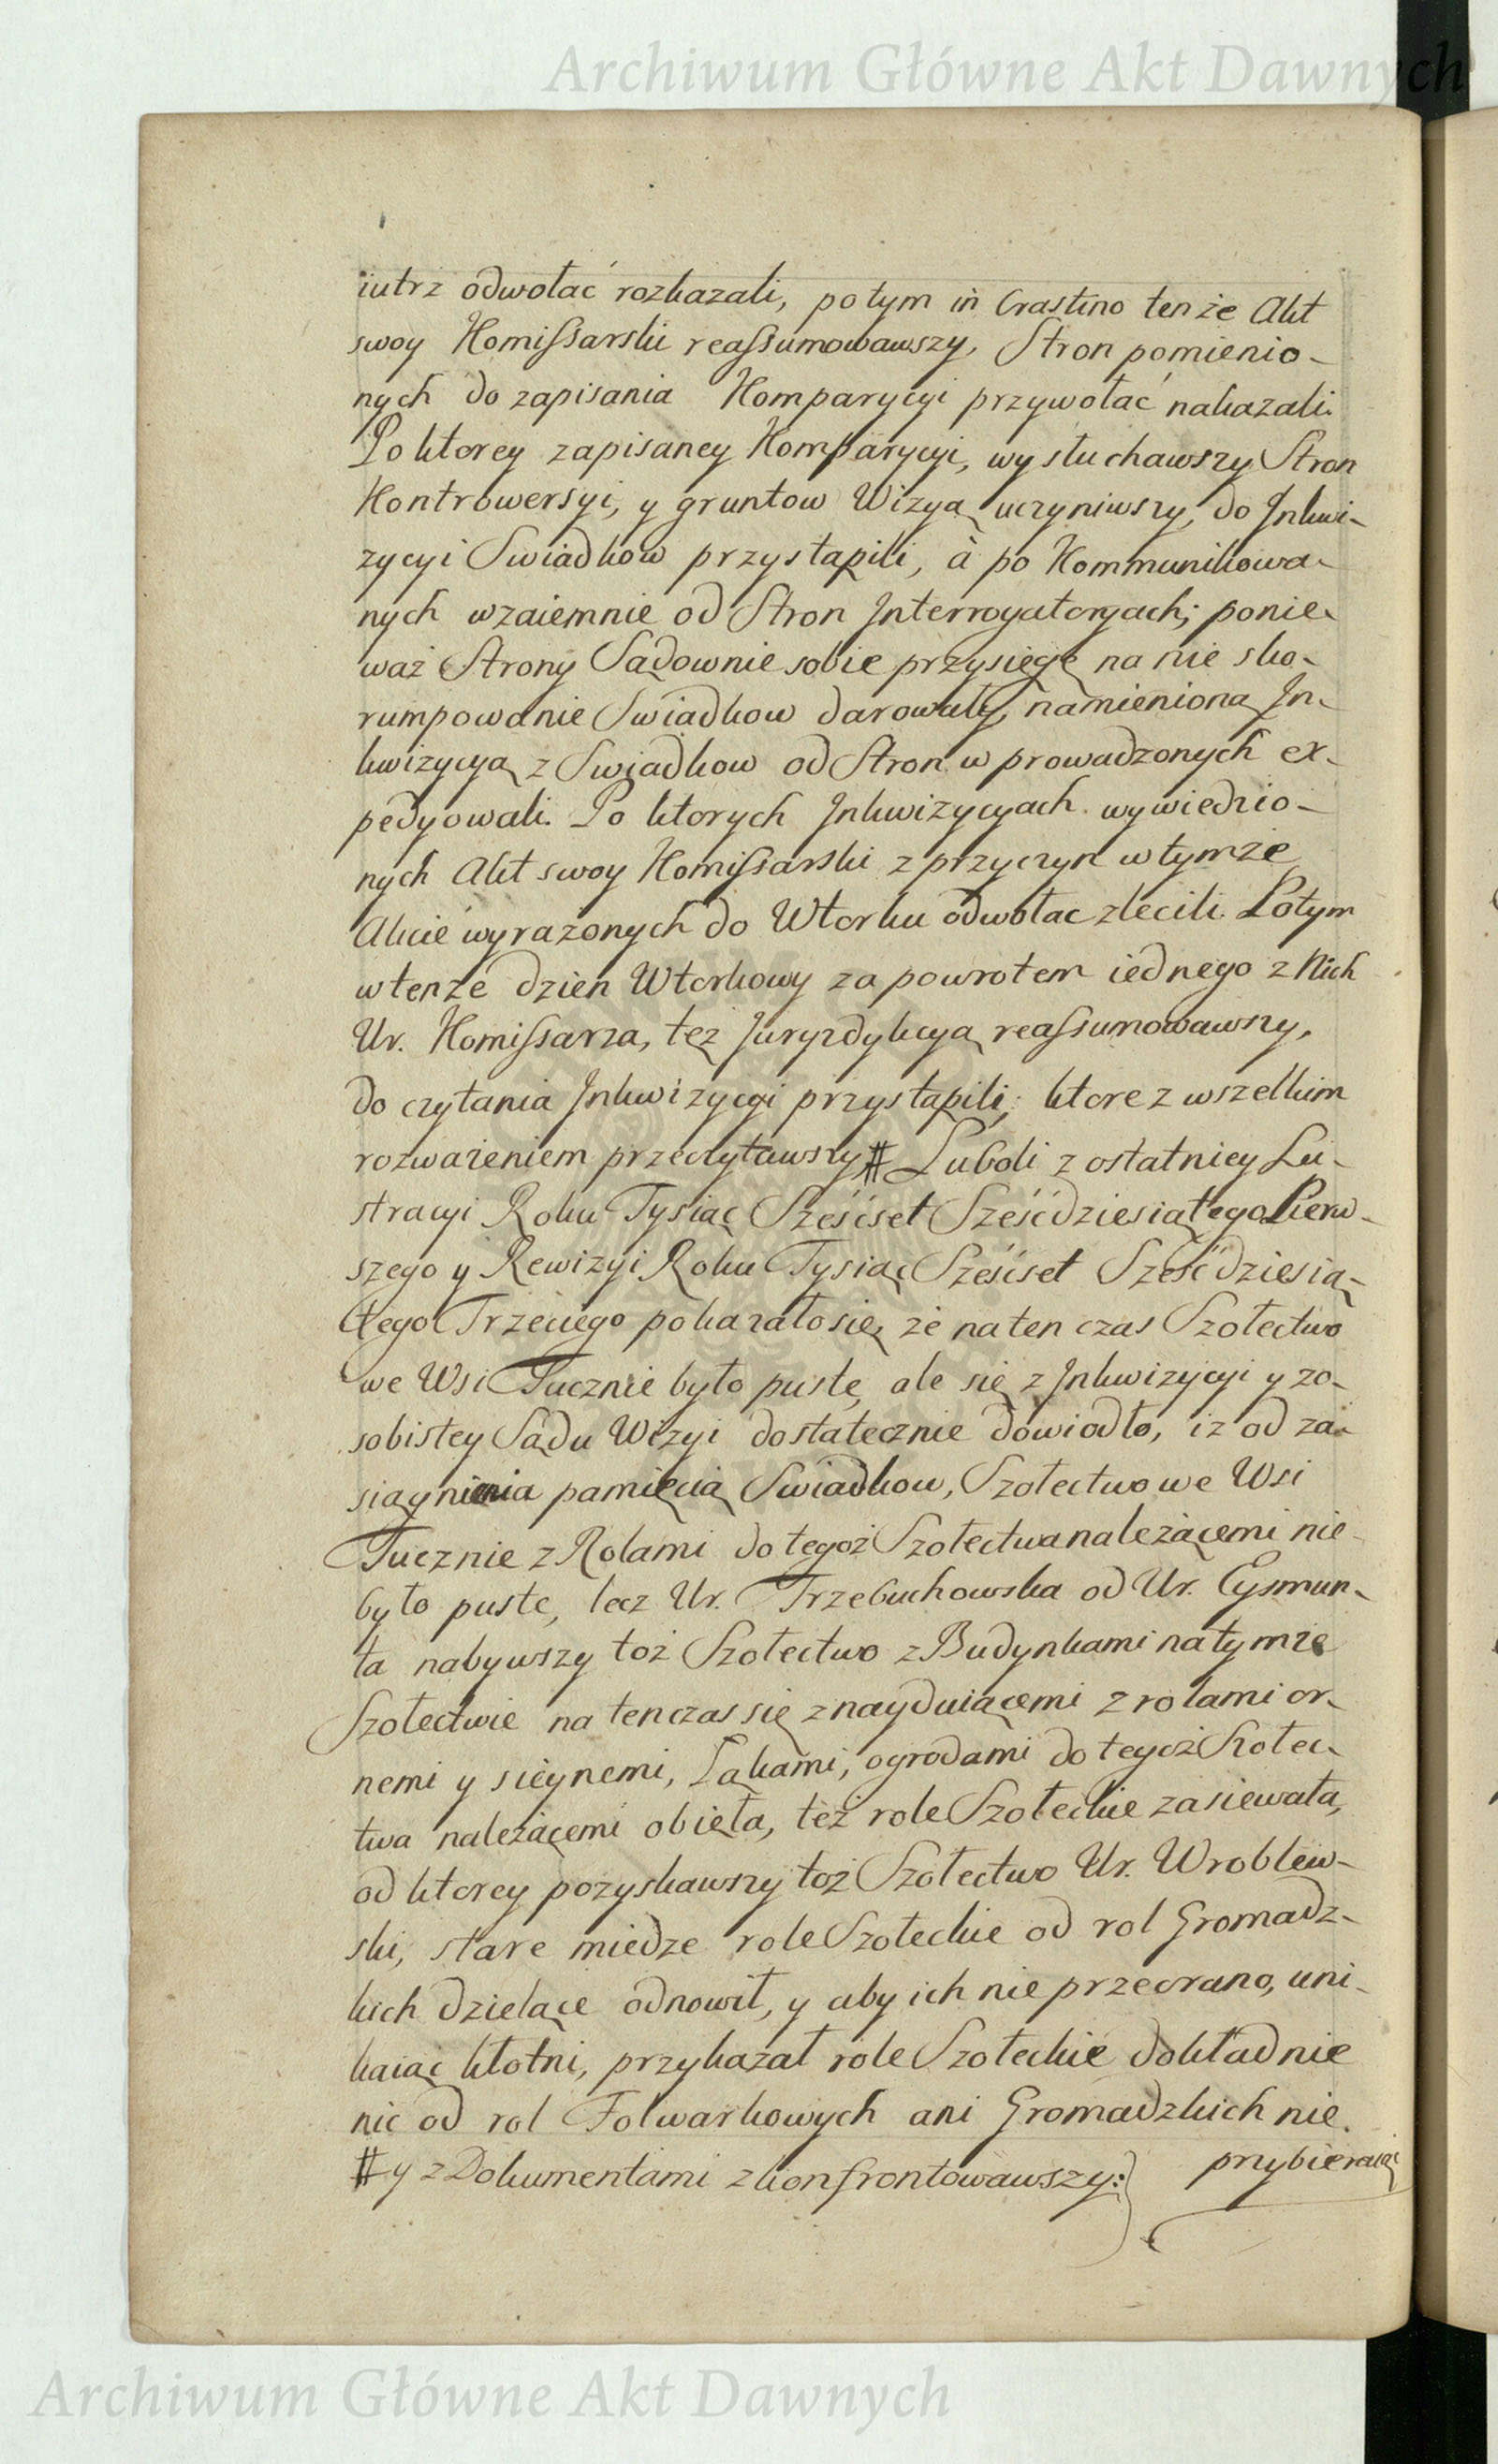 Archiwum Główne Akt Dawnych
iutrz odwołać rozkazali, potym in Crastino tenże Akt
swoy Komissarski reassumowawszy, Stron pomienio-
nych do zapisania Komparycyi przywołać nakazali.
Po ktorey zapisaney Komparycyi, wysłuchawszy Stron
Kontrowersyi, y gruntow Wizyą uczyniwszy, do Inkwi-
zycyi Swiadkow przystąpili, à po Kommunikowa-
nych wzaiemnie od Stron Interrogatoryach; ponie-
waż Strony Sądownie sobie przysięgę na nie sko-
rumpowanie Swiadkow darowały, namienioną In-
kwizycyą z Swiadkow od Stron wprowadzonych ex-
pedyowali. Po ktorych Inkwizycyach wywiedzio-
nych Akt swoy Komissarski z przyczyn w tymże
Akcie wyrażonych do Wtorku odwołac zlecili. Potym
w tenże dzien Wtorkowy za powrotem iednego z Nich
Ur. Komissarza, też Juryzdykcyą reassumowawszy,
do czytania Inkwizycyi przystąpili; ktore z wszelkim
rozważeniem przeczytawszy # Luboli z ostatniey Lu-
stracyi Roku Tysiąc Sześćset Sześćdziesiątego Pierw-
szego y Rewizyi Roku Tysiąc Sześćset Sześćdziesią-
tego Trzeciego pokazało się, że na ten czas Szołectwo
we Wsi Tucznie było puste, ale się z Inkwizycyi y zo-
sobistey Sądu Wizyi dostatecznie dowiodło, iz od za-
siągnienia pamięcią Swiadkow, Szołectwo we Wsi
Tucznie z Rolami do tegoż Szołectwa należącemi nie
było puste, lecz Ur. Trzebuchowska od Ur. Eysmun-
ta nabywszy toż Szołectwo z Budynkami na tymże
Szołectwie na tenczas się znayduiącemi z rolami or-
nemi y sieynemi, Łąkami, ogrodami do tegoż Szołec-
twa należącemi obięła, też role Szołeckie zasiewała,
od ktorey pozyskawszy toż Szołectwo Ur. Wroblew-
ski, stare miedze role Szołeckie od rol Gromadz-
kich dzielące odnowił, y aby ich nie przeorano, uni-
kaiąc kłotni, przykazał role Szołeckie dokładnie
nic od rol Folwarkowych ani Gromadzkich nie
# y z Dokumentami zkonfrontowawszy:
przybieraiąc
Archiwum Główne Akt Dawnych